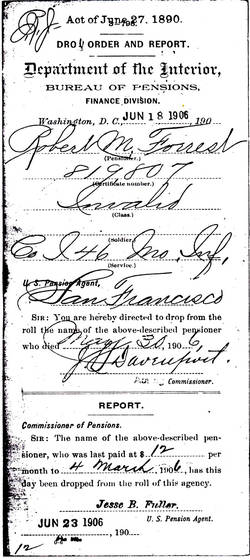 Act of June 27, 1890.
DROP ORDER AND REPORT.
Department of the Interior,
BUREAU OF PENSIONS,
FINANCE DIVISION.
Washington, D. C., JUN 18 1906, 190
Robert M. Forrest
(Pensioner.)
819807
(Certificate number.)
Invalid
(Class.)
(Soldier.)
Co I 46 Mo. Inf.
(Service.)
U. S. Pension Agent,
San Francisco
SIR: You are hereby directed to drop from the
roll the name of the above-described pensioner
who died May 30, 1906.
J. L. Davenport.
Commissioner.
REPORT.
Commissioner of Pensions.
SIR: The name of the above-described pen-
sioner, who was last paid at $ 12
per month to 4 March 1906, has this
day been dropped from the roll of this agency.
Jesse B. Fuller.
U. S. Pension Agent.
JUN 23 1906, 190
12